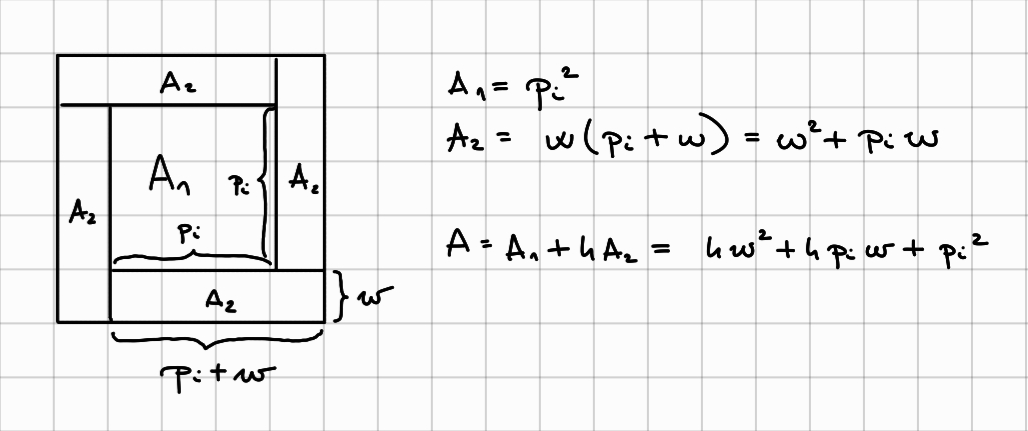 A₂
A₁
pᵢ
A₂
A₂
pᵢ
A₂
w
pᵢ + w
A₁ = pᵢ²
A₂ = w(pᵢ + w) = w² + pᵢ w
A = A₁ + 4A₂ = 4w² + 4pᵢ w + pᵢ²